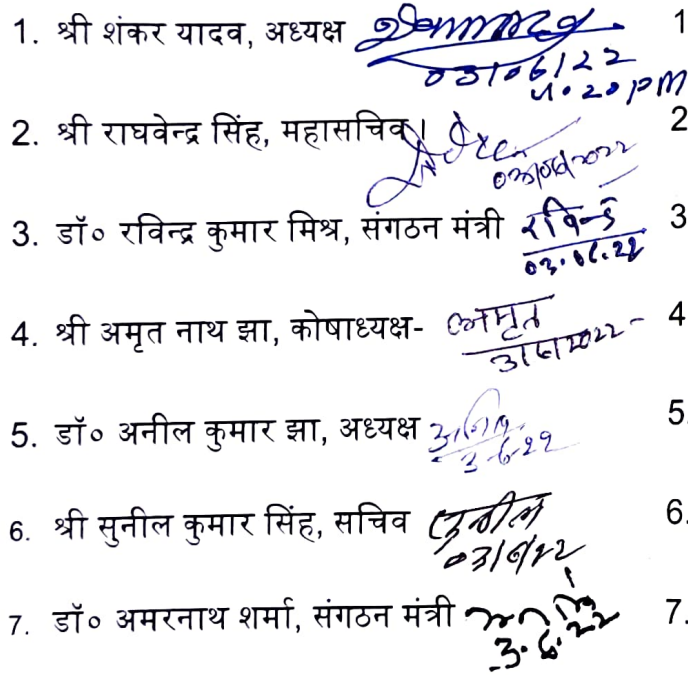 1. श्री शंकर यादव, अध्यक्ष 1
03/06/22
4.20 pm
2. श्री राघवेन्द्र सिंह, महासचिव। 2
03/06/2022
3. डॉ० रविन्द्र कुमार मिश्र, संगठन मंत्री रविन्द्र 3
03.06.22
4. श्री अमृत नाथ झा, कोषाध्यक्ष- अमृत 4
3/6/2022
5. डॉ० अनील कुमार झा, अध्यक्ष 5.
3-6-22
6. श्री सुनील कुमार सिंह, सचिव सुनील 6.
03/6/22
7. डॉ० अमरनाथ शर्मा, संगठन मंत्री 7.
3.6.22